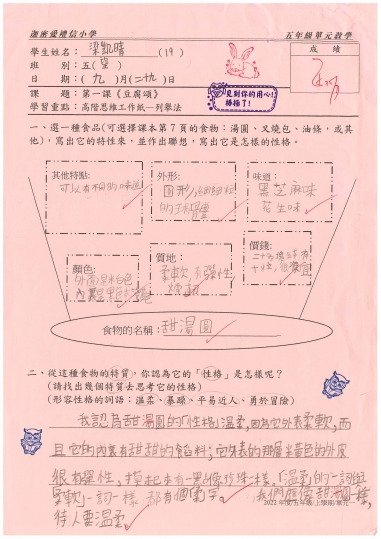 迦密愛禮信小學 五年級單元教學
學生姓名：梁凱晴(19)
成績
班別：五(望)
日期：(九)月(二十九)日
見到你的用心!
棒極了!
課題：第一課《豆腐頌》
學習重點：高階思維工作紙—列舉法
一、選一種食品(可選擇課本第7頁的食物：湯圓、叉燒包、油條，或其
他)，寫出它的特性來，並作出聯想，寫出它是怎樣的性格。
其他特點:
可以有不同的味道
外形:
圓形，細細粒
的
味道:
黑芝麻味
花生味
顏色:
外面是米白色
質地:
柔軟，有彈性，
煙韌
價錢:
食物的名稱：甜湯圓
二、從這種食物的特質，你認為它的「性格」是怎樣呢？
(請找出幾個特質去思考它的性格)
(形容性格的詞語：溫柔、暴躁、平易近人、勇於冒險)
我認為甜湯圓的「性格」溫柔，因為它外表柔軟，而
且它的內裏有甜甜的餡料；它外表的那層米白色的外皮
很有彈性，摸起來有一點像珍珠一樣，「溫柔」的一詞與
柔軟一詞一樣都有個柔字。我們應像甜湯圓一樣，
2022年度/五年級/上學期/單元一
待人要溫柔。